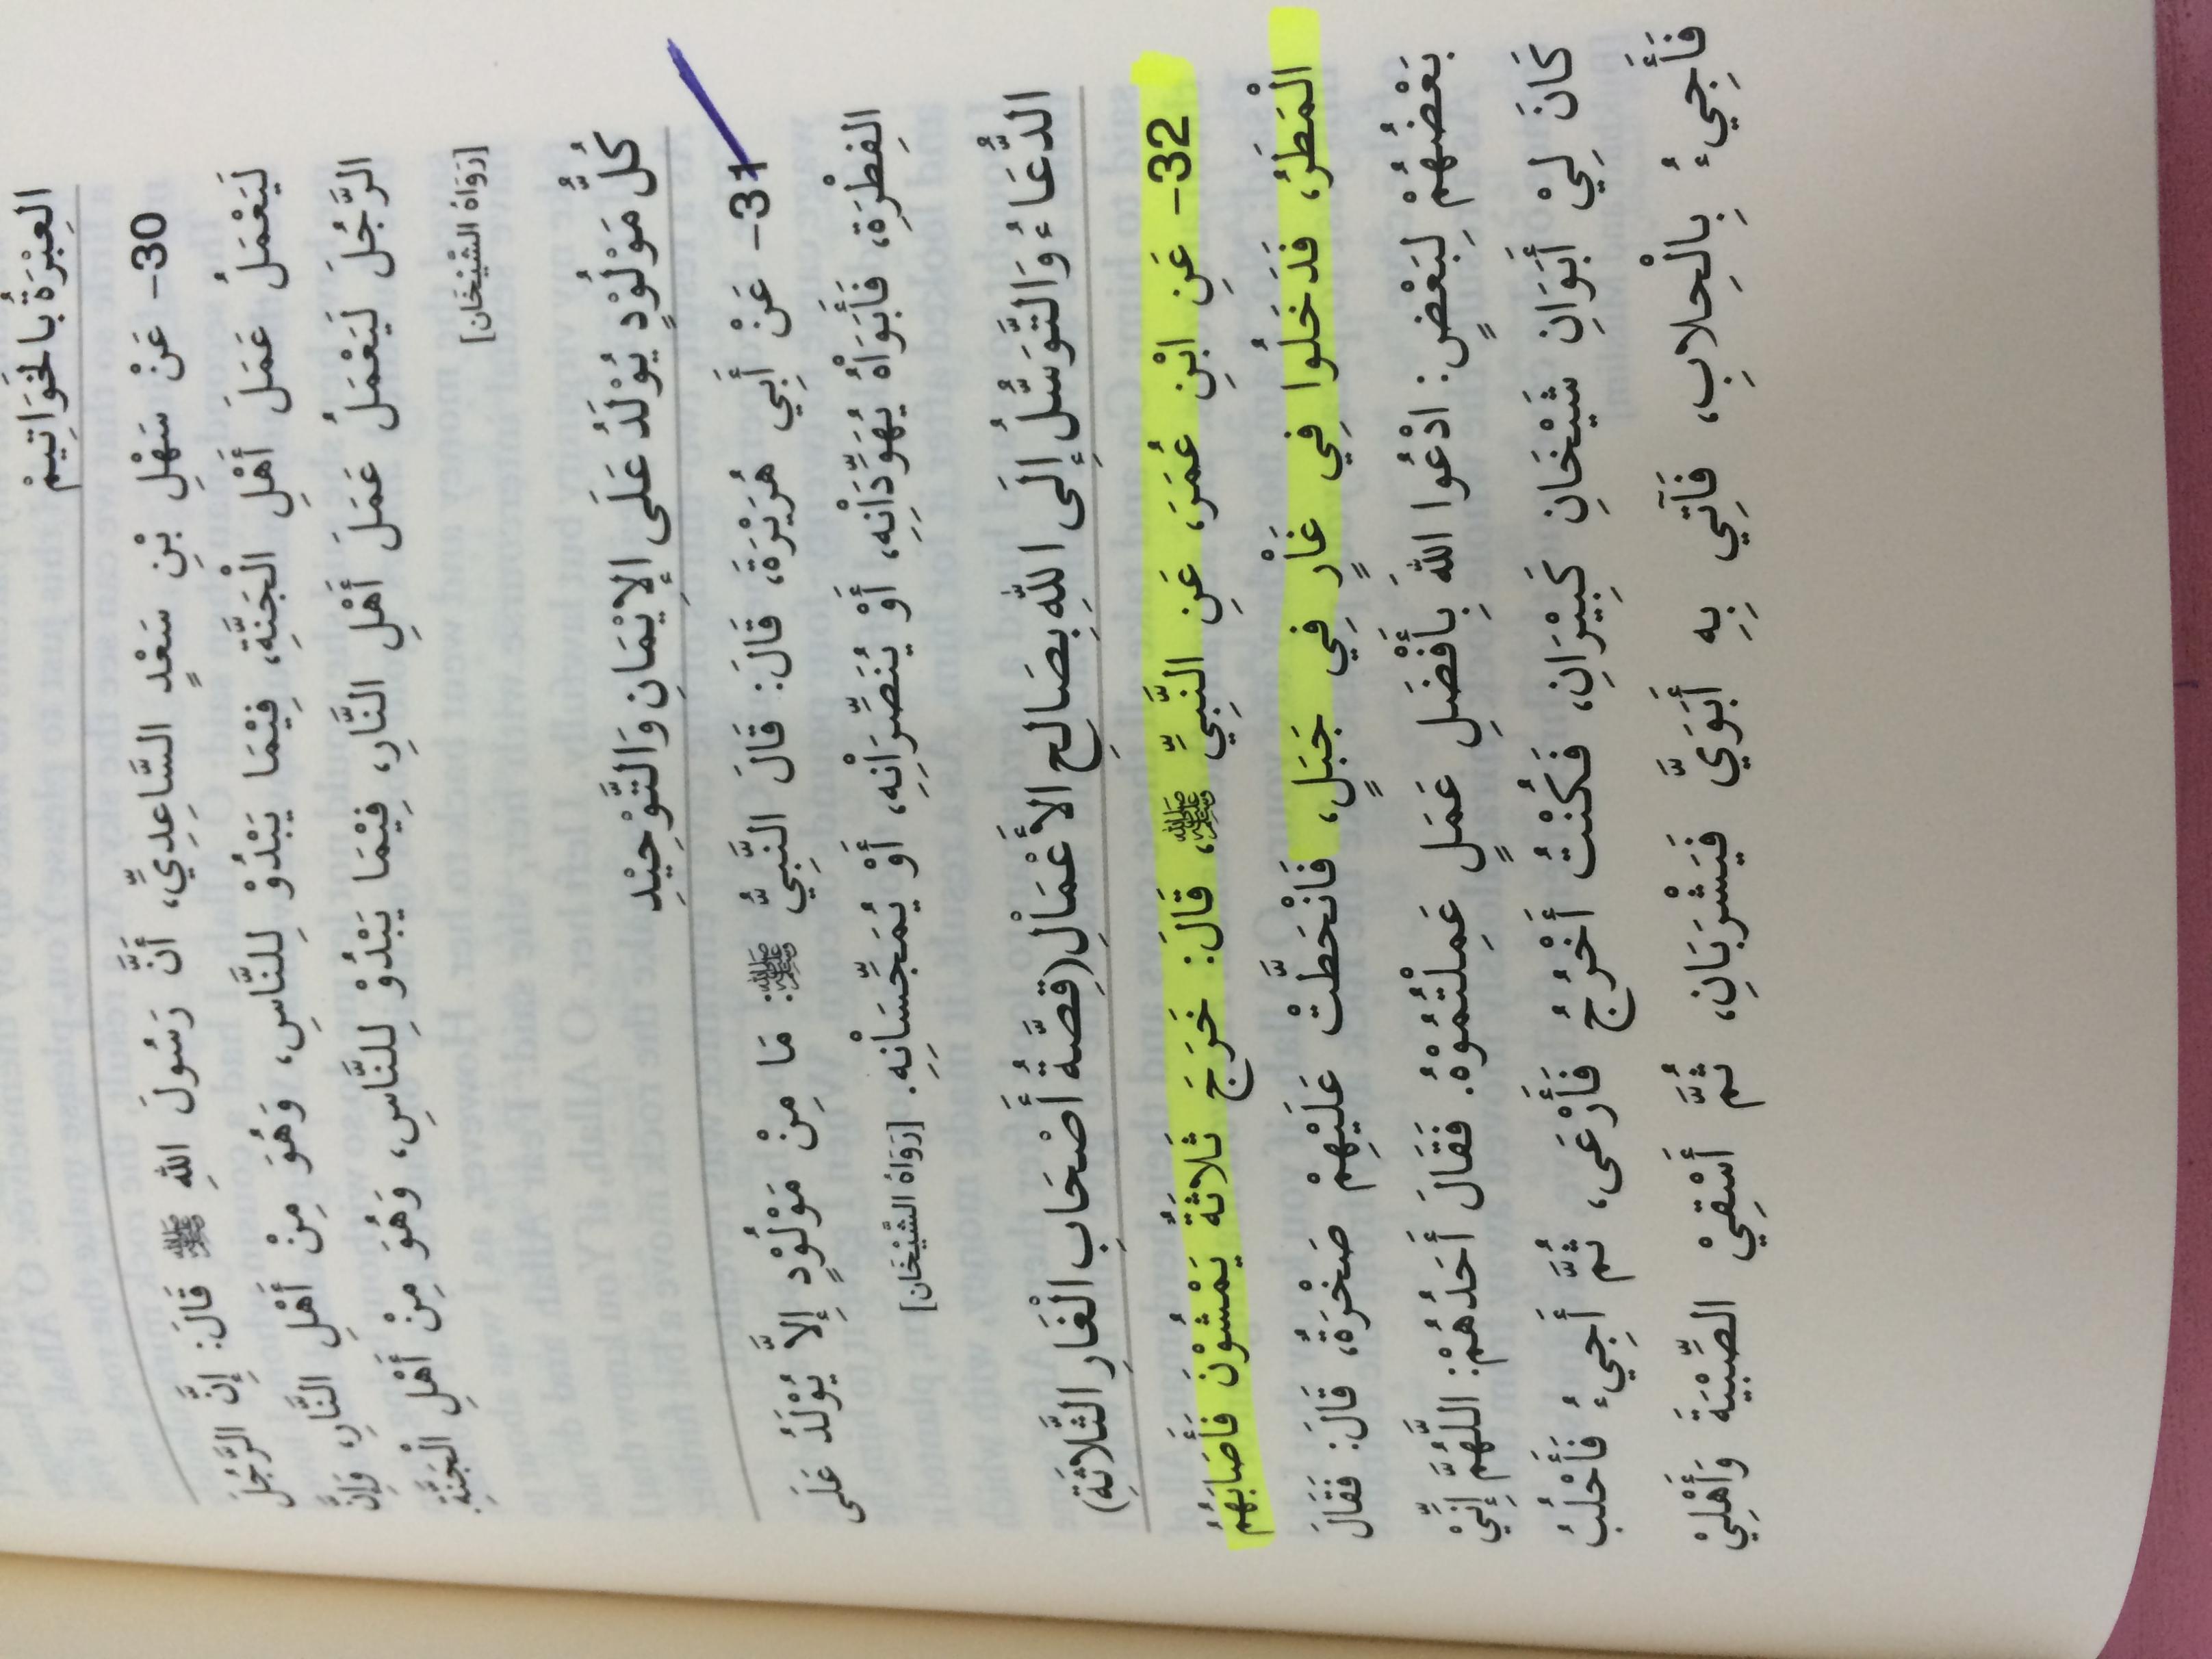 العِبْرَةُ بِالخَوَاتِيمْ
30- عَنْ سَهْلِ بْنِ سَعْدٍ السَّاعِدِيِّ، أَنَّ رَسُولَ اللهِ ﷺ قَالَ: إِنَّ الرَّجُلَ
لَيَعْمَلُ عَمَلَ أَهْلِ الْجَنَّةِ، فِيْمَا يَبْدُوْ لِلنَّاسِ، وَهُوَ مِنْ أَهْلِ النَّارِ، وَإِنَّ
الرَّجُلَ لَيَعْمَلُ عَمَلَ أَهْلِ النَّارِ، فِيْمَا يَبْدُوْ لِلنَّاسِ، وَهُوَ مِنْ أَهْلِ الْجَنَّةِ.
[رَوَاهُ الشَّيْخَان]
كُلُّ مَوْلُوْدٍ يُوْلَدُ عَلَى الإِيْمَانِ وَالتَّوْحِيْدِ
31- عَنْ أَبِي هُرَيْرَةَ، قَالَ: قَالَ النَّبِيُّ ﷺ: مَا مِنْ مَوْلُوْدٍ إِلاَّ يُوْلَدُ عَلَى
الِفطْرَةِ، فَأَبَوَاهُ يُهَوِّدَانِهِ، أَوْ يُنَصِّرَانِهِ، أَوْ يُمَجِّسَانِهِ. [رَوَاهُ الشَّيْخَان]
الدُّعَاءُ وَالتَّوَسُّلُ إِلَى اللهِ بِصَالِحِ الأَعْمَالِ (قِصَّةُ أَصْحَابِ الْغَارِ الثَّلاثَةِ)
32- عَنِ ابْنِ عُمَرَ، عَنِ النَّبِيِّ ﷺ، قَالَ: خَرَجَ ثَلاثَةٌ يَمْشُوْنَ فَأَصَابَهُمُ
الْمَطَرُ، فَدَخَلُوا فِي غَارٍ فِي جَبَلٍ، فَانْحَطَّتْ عَلَيْهِمْ صَخْرَةٌ، قَالَ: فَقَالَ
بَعْضُهُمْ لِبَعْضٍ: ادْعُوا اللهَ بِأَفْضَلِ عَمَلٍ عَمِلْتُمُوْهُ. فَقَالَ أَحَدُهُمْ: اللَّهُمَّ إِنِّيْ
كَانَ لِيْ أَبَوَانِ شَيْخَانِ كَبِيْرَانِ، فَكُنْتُ أَخْرُجُ فَأَرْعَى، ثُمَّ أَجِيءُ فَأَحْلُبُ
فَأَجِيءُ بِالْحِلابِ، فَآتِي بِهِ أَبَوَيَّ فَيَشْرَبَانِ، ثُمَّ أَسْقِيْ الصِّبْيَةَ وَأَهْلِيْ